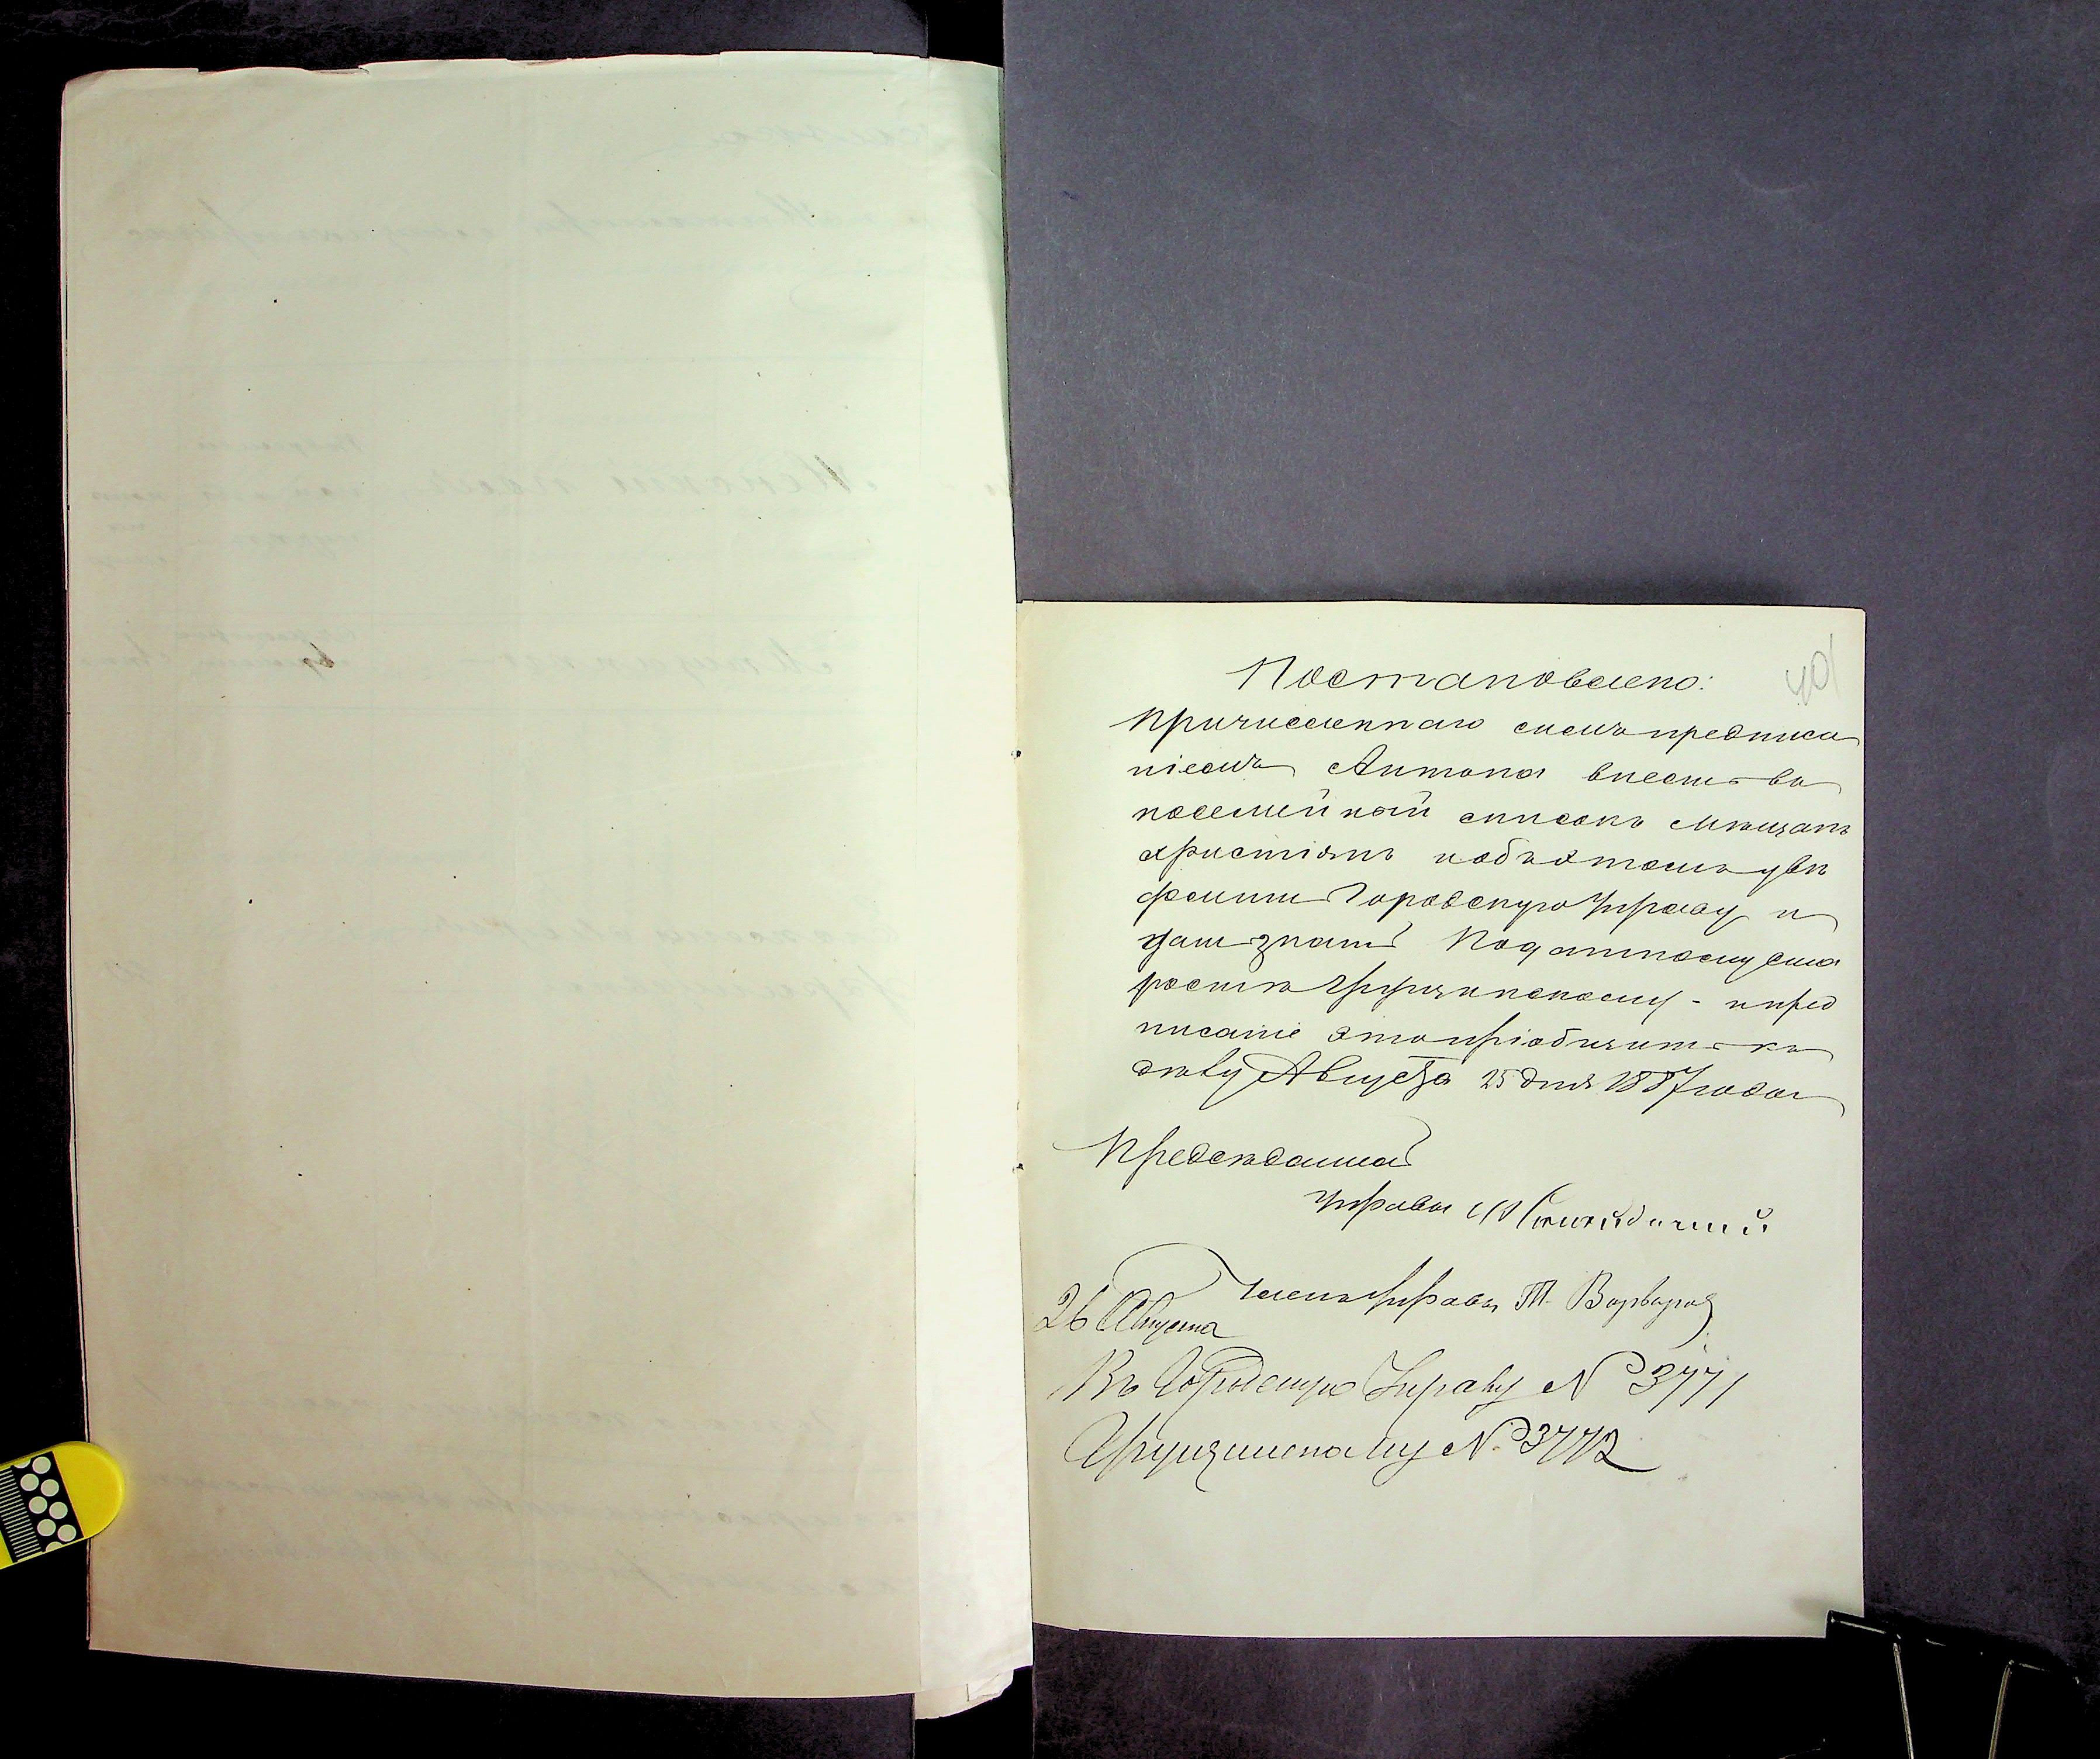 40
Постановлено:
Причисленнаго симъ предписа
ніемъ Антона внесть въ
посемейный списокъ мѣщанъ
христіянъ и объ этомъ увѣ
Городскую Управу и
дать знать Податному Ста
ростѣ Грушинскому - и пред
писаніе это пріобщить къ
дѣлу Августа 25 дня 1887 года
Предсѣдатель
Управы
Членъ Управы Т. Варваров
26 Августа
Въ Городскую Управу № 3771
Грушинскому № 3772